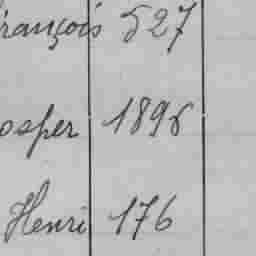 rançois 527
osper 1896
Henri 176